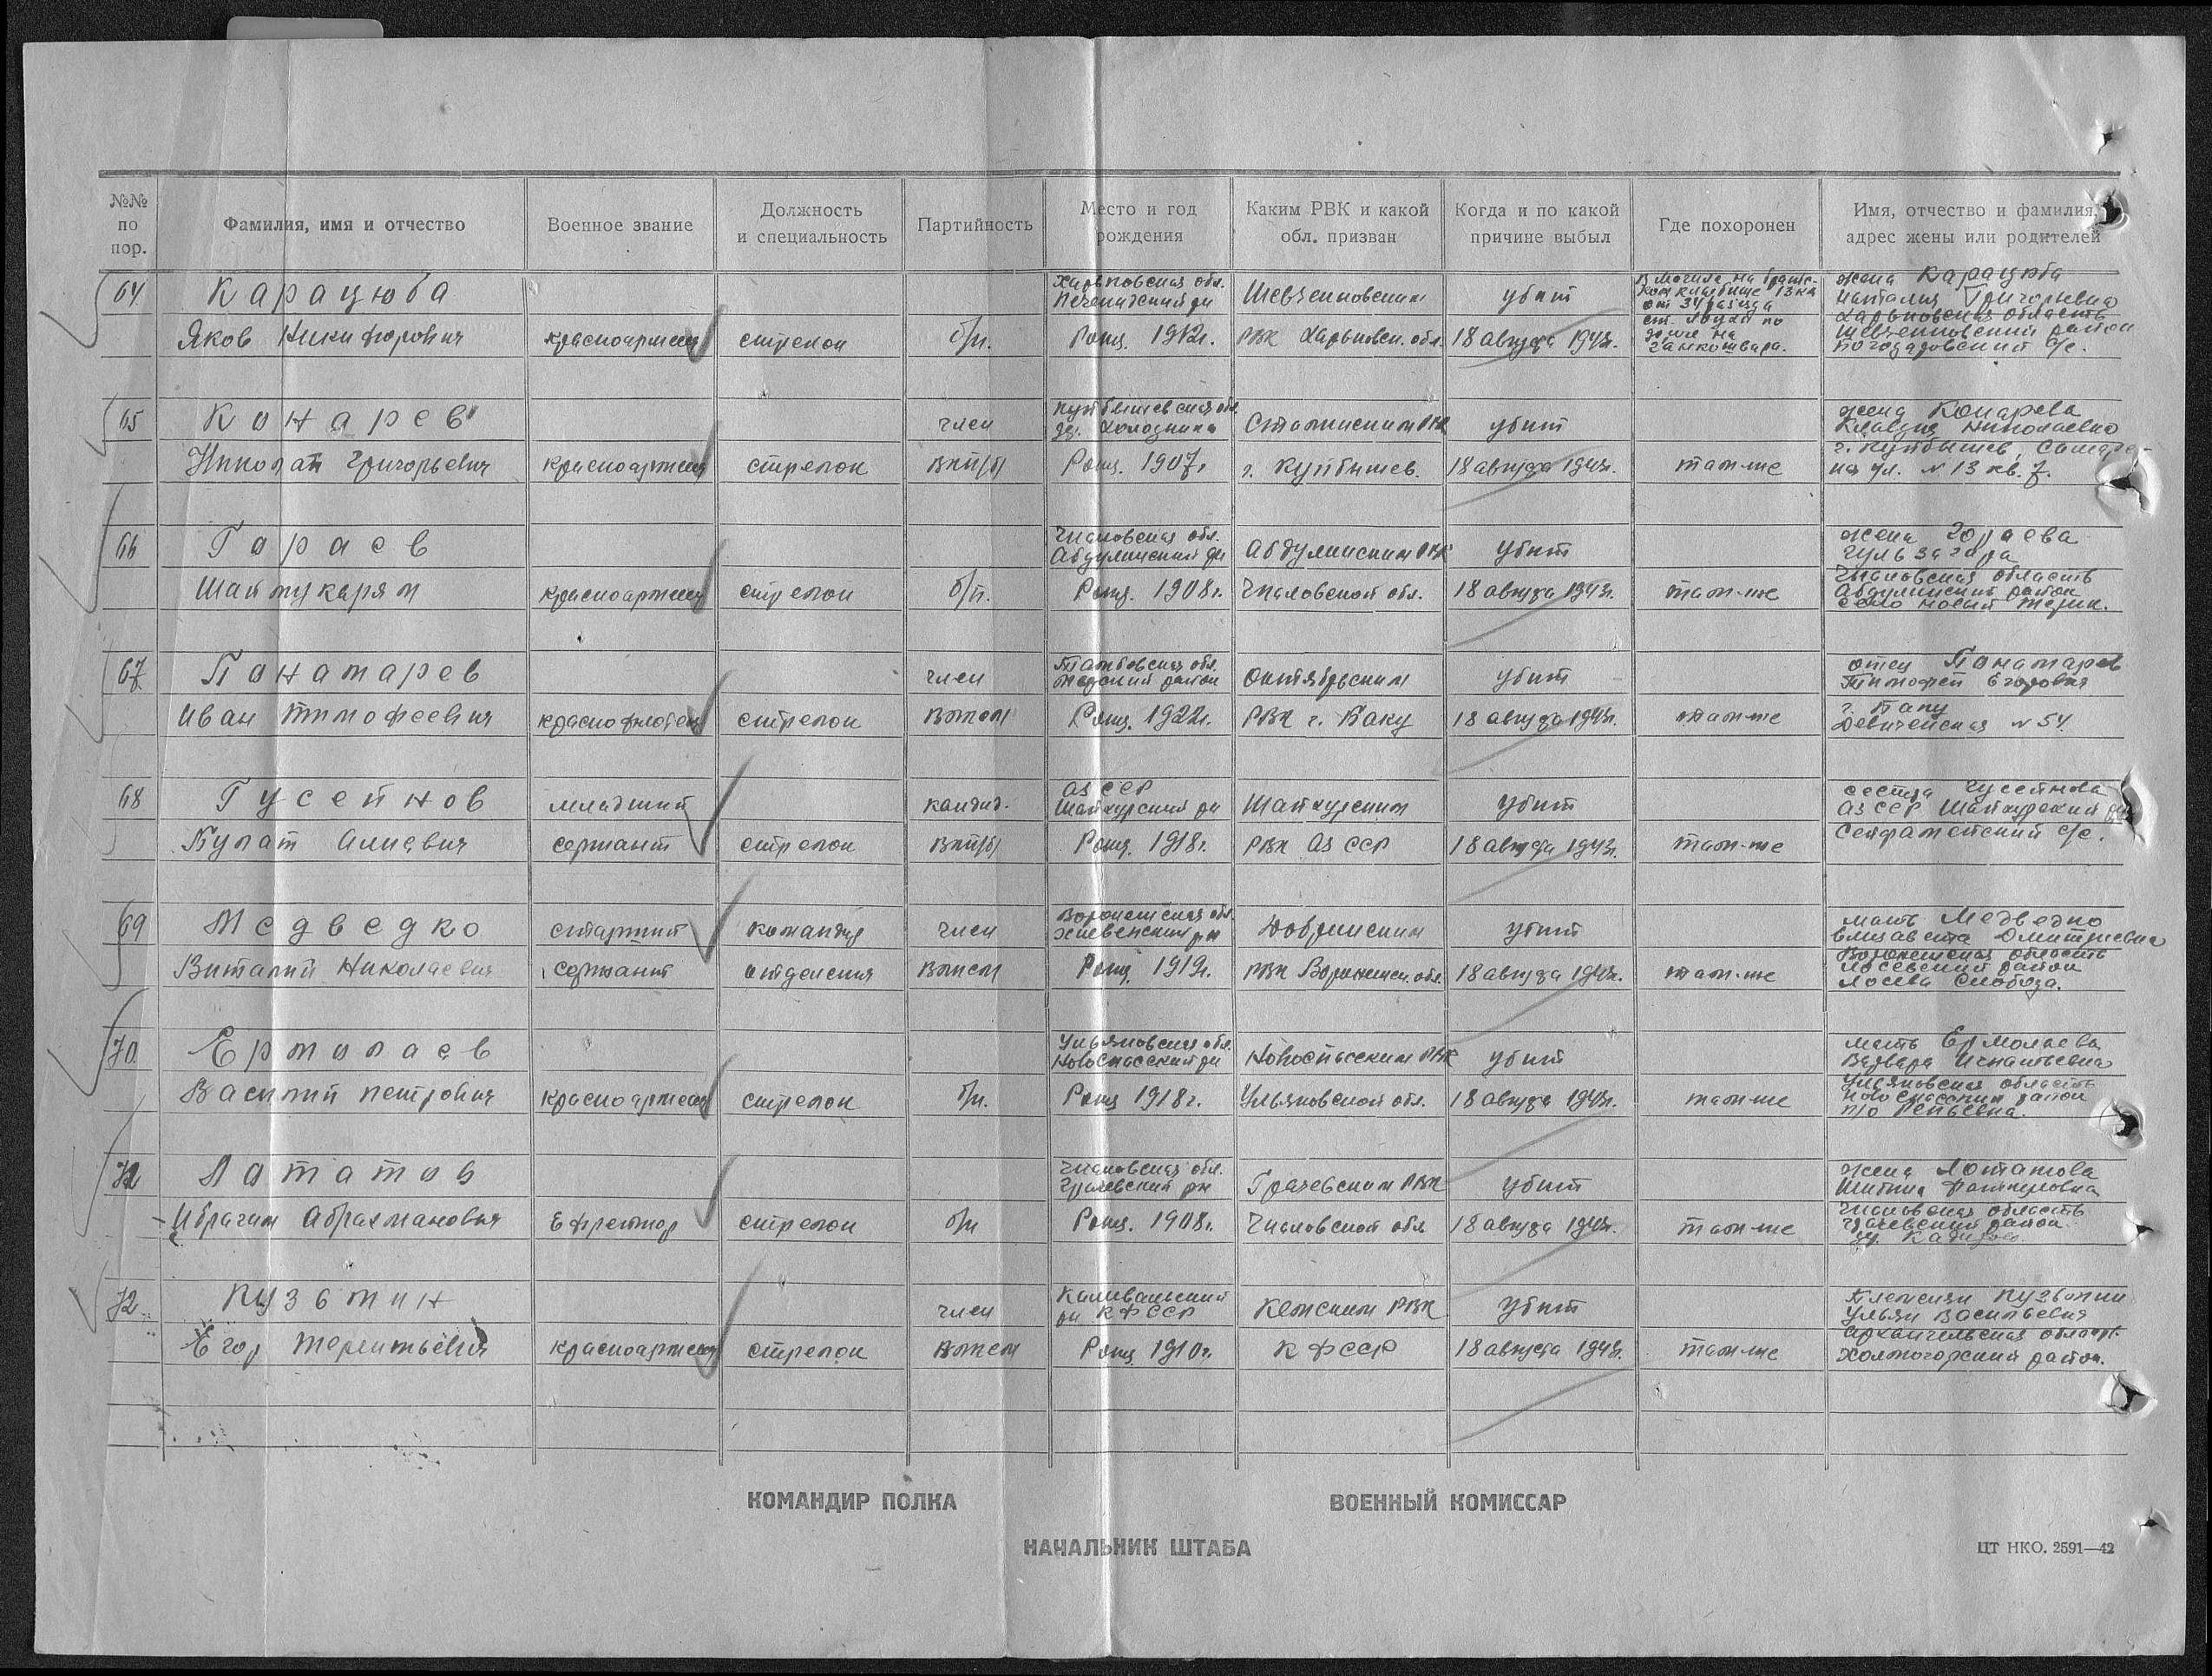 №№ по пор.
Фамилия, имя и отчество
Военное звание
Должность и специальность
Партийность
Место и год рождения
Каким РВК и какой обл. призван
Когда и по какой причине выбыл
Где похоронен
Имя, отчество и фамилия, адрес жены или родителей
64 Карацюба Харьковская обл. Шевченковским убит жена Карацюба
Наталия Григорьевна
Яков Никифорович красноармеец стрелок б/п. Рожд. 1912г. РВК Харьковск. обл. 18 августа 1943г.
Харьковская область
Шевченковский район
65 Конарев член Куйбышевская обл. Сталинским РВК убит жена Конарева
Клавдия Николаевна
Николай Григорьевич красноармеец стрелок ВКП/б/ Рожд. 1907г. г. Куйбышев. 18 августа 1943г. там-же
г. Куйбышев,
на ул. № 13 кв. 7.
66 Гараев Чкаловская обл. Абдулинский рн Абдулинским РВК убит жена Гораева
Шаймукарям красноармеец стрелок б/п. Рожд. 1908г. Чкаловской обл. 18 августа 1943г. там-же
Чкаловская область
Абдулинский район
67 Панамарев член Тамбовская обл. Октябрьским убит отец Панамарев
Тимофей Егорович
Иван Тимофеевич краснофлотец стрелок ВЛКСМ Рожд. 1922г. РВК г. Баку 18 августа 1943г. там-же
г. Баку
№ 54
68 Гусейнов младший кандид. Аз ССР убит сестра Гусейнова
Булат Алиевич сержант стрелок ВКП/б/ Рожд. 1918г. РВК Аз ССР 18 августа 1943г. там-же
69 Медведко старший командир член Воронежская обл. Добринским убит мать Медведко
Елизавета Дмитриевна
Виталий Николаевич сержант отделения ВЛКСМ Рожд. 1919г. РВК Воронежск. обл. 18 августа 1943г. там-же
Воронежская область
Лосевский район
Лосева Слобода.
70 Ермолаев Ульяновская обл. Новоспасский рн Новоспасским РВК убит мать Ермолаева
Варвара Игнатьевна
Василий Петрович красноармеец стрелок б/п. Рожд 1918г. Ульяновской обл. 18 августа 1943г. там-же
Ульяновская область
Новоспасский район
п/о Репьевка.
71 Лататов Чкаловская обл. Грачевский рн Грачевским РВК убит жена Лотатова
Ибрагим Абрахманович Ефрейтор стрелок б/п Рожд. 1908г. Чкаловской обл 18 августа 1943г. там-же
Чкаловская область
Грачевский район
72 Кузьмин член рн КФССР Кемским РВК убит
Ульян Васильевич
Егор Терентьевич красноармеец стрелок ВЛКСМ Рожд 1910г. КФССР 18 августа 1943г. там-же
Архангельская област.
Холмогорский район.
КОМАНДИР ПОЛКА
ВОЕННЫЙ КОМИССАР
НАЧАЛЬНИК ШТАБА
ЦТ НКО. 2591—42